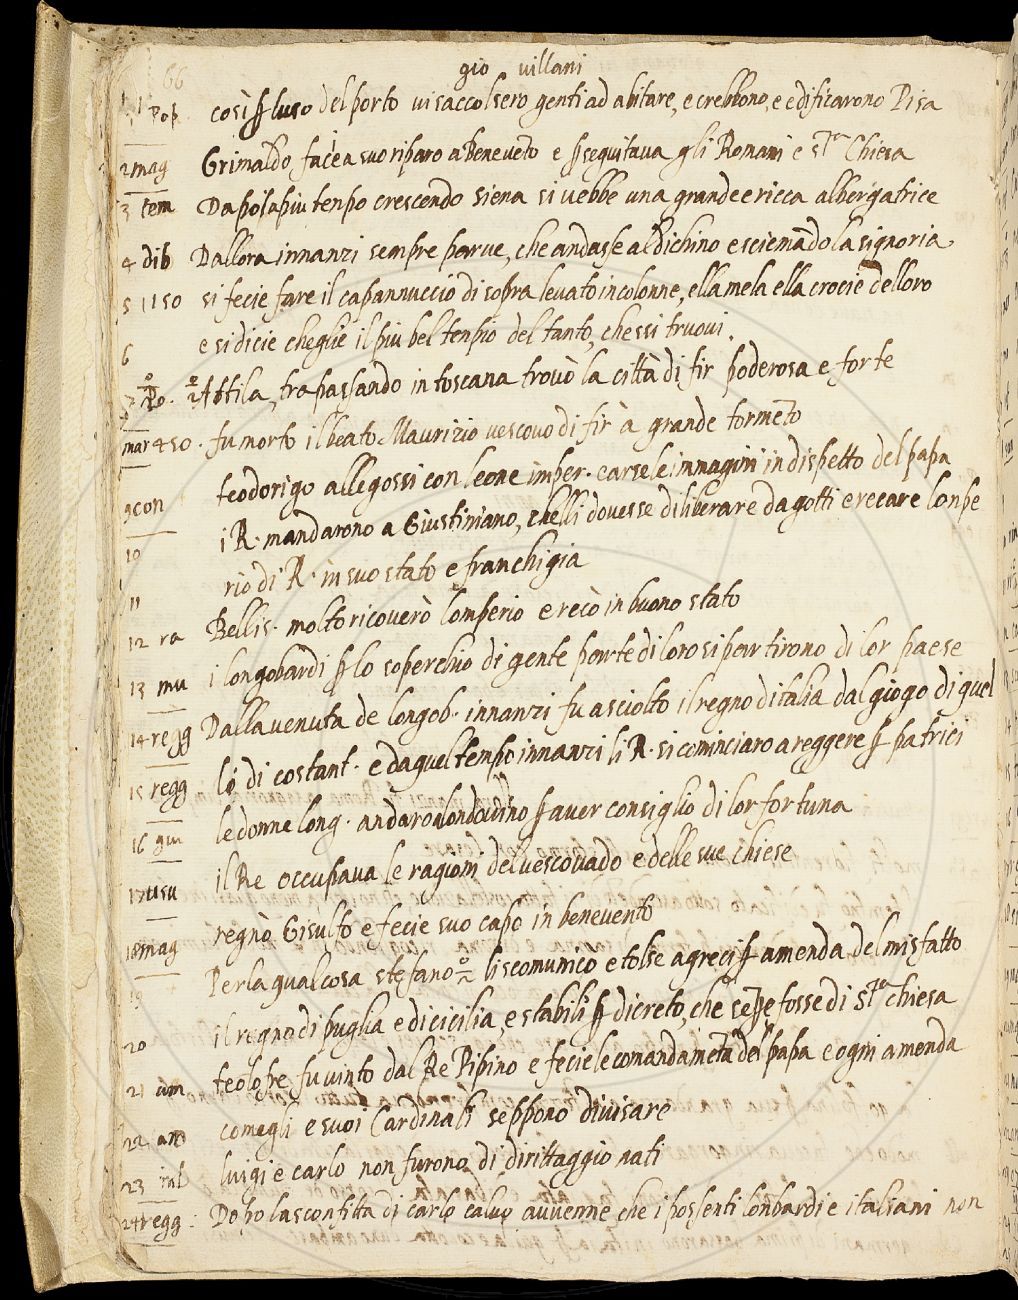 66
gio villani
1 Pop cosi ꝑ luso del porto vi saccolsero genti ad abitare, e crebbono, e edificarono Pisa
2 mag Grimaldo facea suo riparo a Beneveto e ꝑseguitava gli Romani e sta Chiesa
3 tem Da poi a piu tenpo crescendo Siena si vebbe una grande e ricca albergatrice
4 dib Dallora innanzi sempre parve, che andasse al dichino e sciemado la signoria
5 1150 si fecie fare il capannuccio di sopra levato in colonne, ella mela ella crocie delloro
6 e si dicie cheglie il piu bel tenpio del tanto, che ssi truovi.
7 Po. Attila, trapassando in toscana trovò la città di fir poderosa e forte
mar 450. fu morto il beato Maurizio vescovo di fir à grande tormeto
9 con teodorigo allegossi con leone imper. carse le immagini in dispetto del papa
10 i R. mandarono a Giustiniano, chelli dovesse diliberare da gotti e recare lonpe
11 rio di R. in suo stato e franchigia
12 ra Bellis. molto ricoverò lomperio e recò in buono stato
13 mu i longobardi ꝑ lo soperchio di gente parte di loro si partirono di lor paese
14 regg Dalla venuta de longob. innanzi fu asciolto il regno ditalia dal giogo di quel
15 regg lo di costant. e da quel tempo innanzi li R. si cominciaro a reggere ꝑ patrici
16 giu le donne long. andaro ꝑ aver consiglio di lor fortuna
17 usu il Re occupava le ragioni del vescovado e delle sue chiese
18 mag regnò Gisulfo e fecie suo capo in benevento
19 Per la qual cosa stefano li scomunicò e tolse a greci ꝑ amenda del misfatto
20 il regno di puglia e di cicilia, e stabili ꝑ dicreto, che seꝑe fosse di sta chiesa
21 am teolofre fu vinto dal Re Pipino e fecie le comandameta del papa e ogni amenda
22 am comegli e suoi Cardinali seppono divisare
23 ral luigi e carlo non furono di dirittaggio nati
24 regg: Dopo la sconfitta di carlo calvo avvenne che i possenti lonbardi e italiani non